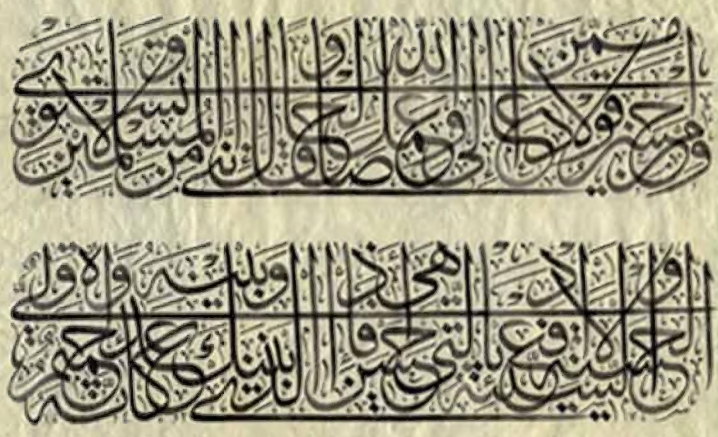 ومن أحسن قولا ممن دعا إلى الله وعمل صالحا وقال إنني من المسلمين ولا تستوي
الحسنة ولا السيئة ادفع بالتي هي أحسن فإذا الذي بينك وبينه عداوة كأنه ولي حميم